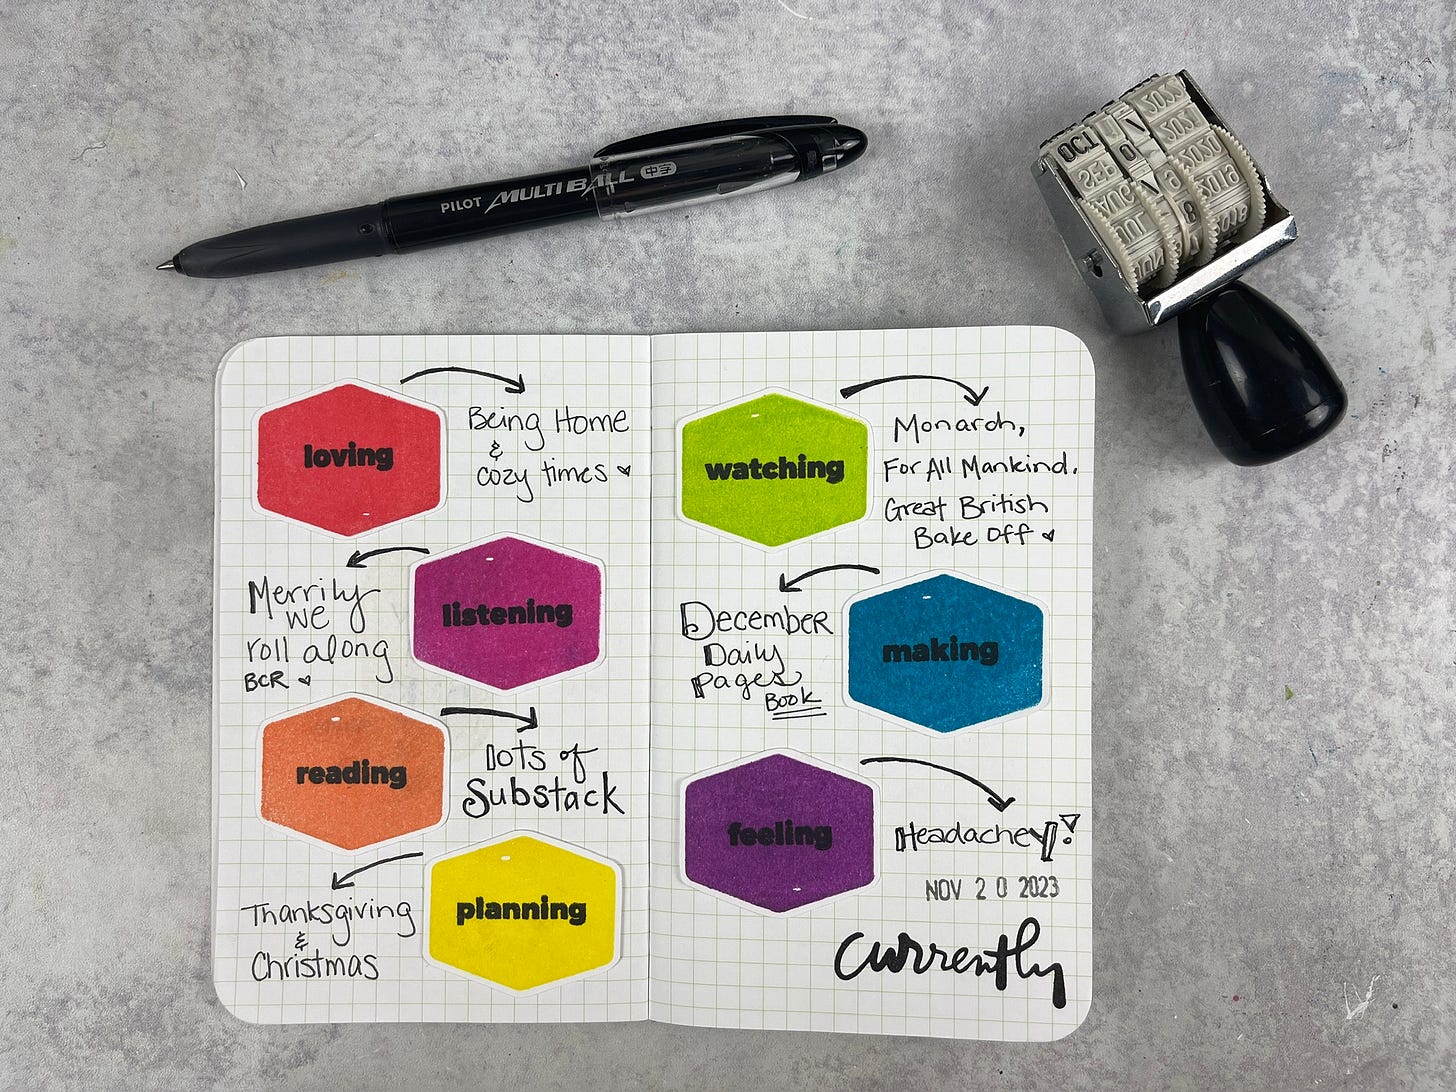 PILOT MULTI BALL 中字
OCT
SEP
AUG
JUL
JUN
2022
2021
2020
2019
2018
loving
Being Home
&
cozy times
listening
Merrily
we
roll along
BCR
reading
lots of
Substack
planning
Thanksgiving
&
Christmas
watching
Monarch,
For All Mankind.
Great British
Bake Off
making
December
Daily
pages
Book
feeling
Headachey!
NOV 20 2023
currently